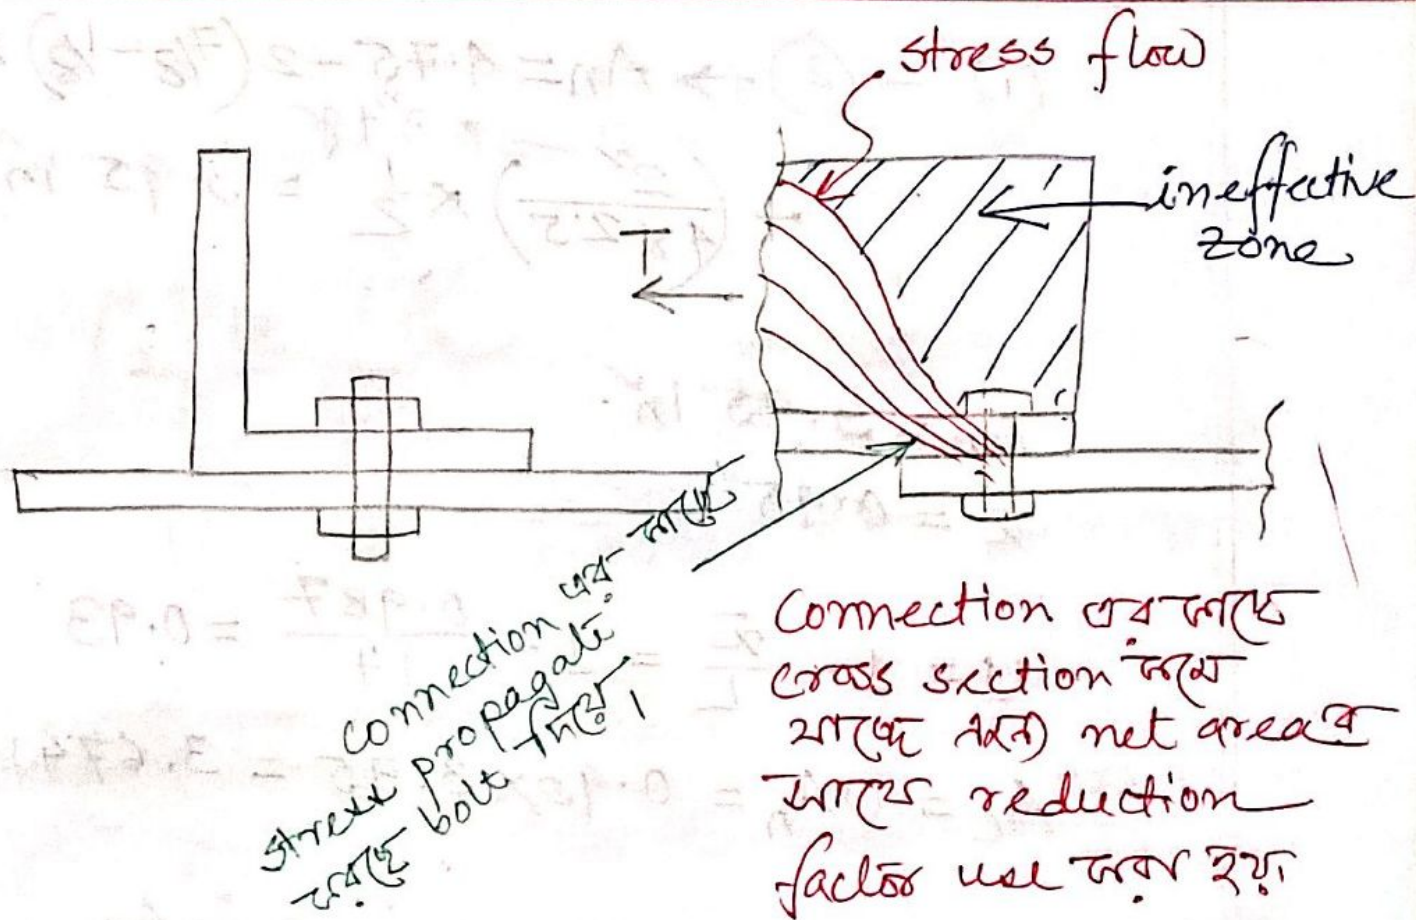 stress flow
ineffective
zone
T
connection এর কাছে
stress propagate
করছে bolt দিয়ে।
Connection এর কাছে
cross section কমে
যাচ্ছে এজন্য net area র
সাথে reduction
factor use করা হয়।